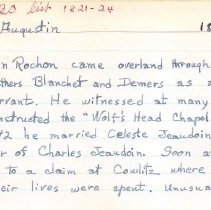 20 list 1821-24
Augustin 18
n Rochon came overland through
thers Blanchet and Demers as a
rvant. He witnessed at many
nstructed the "Wolf's Head Chapel
tz he married Celeste Jeaudoin
r of Charles Jeaudoin. Soon a
to a claim at Cowlitz where
eir lives were spent. Unusua